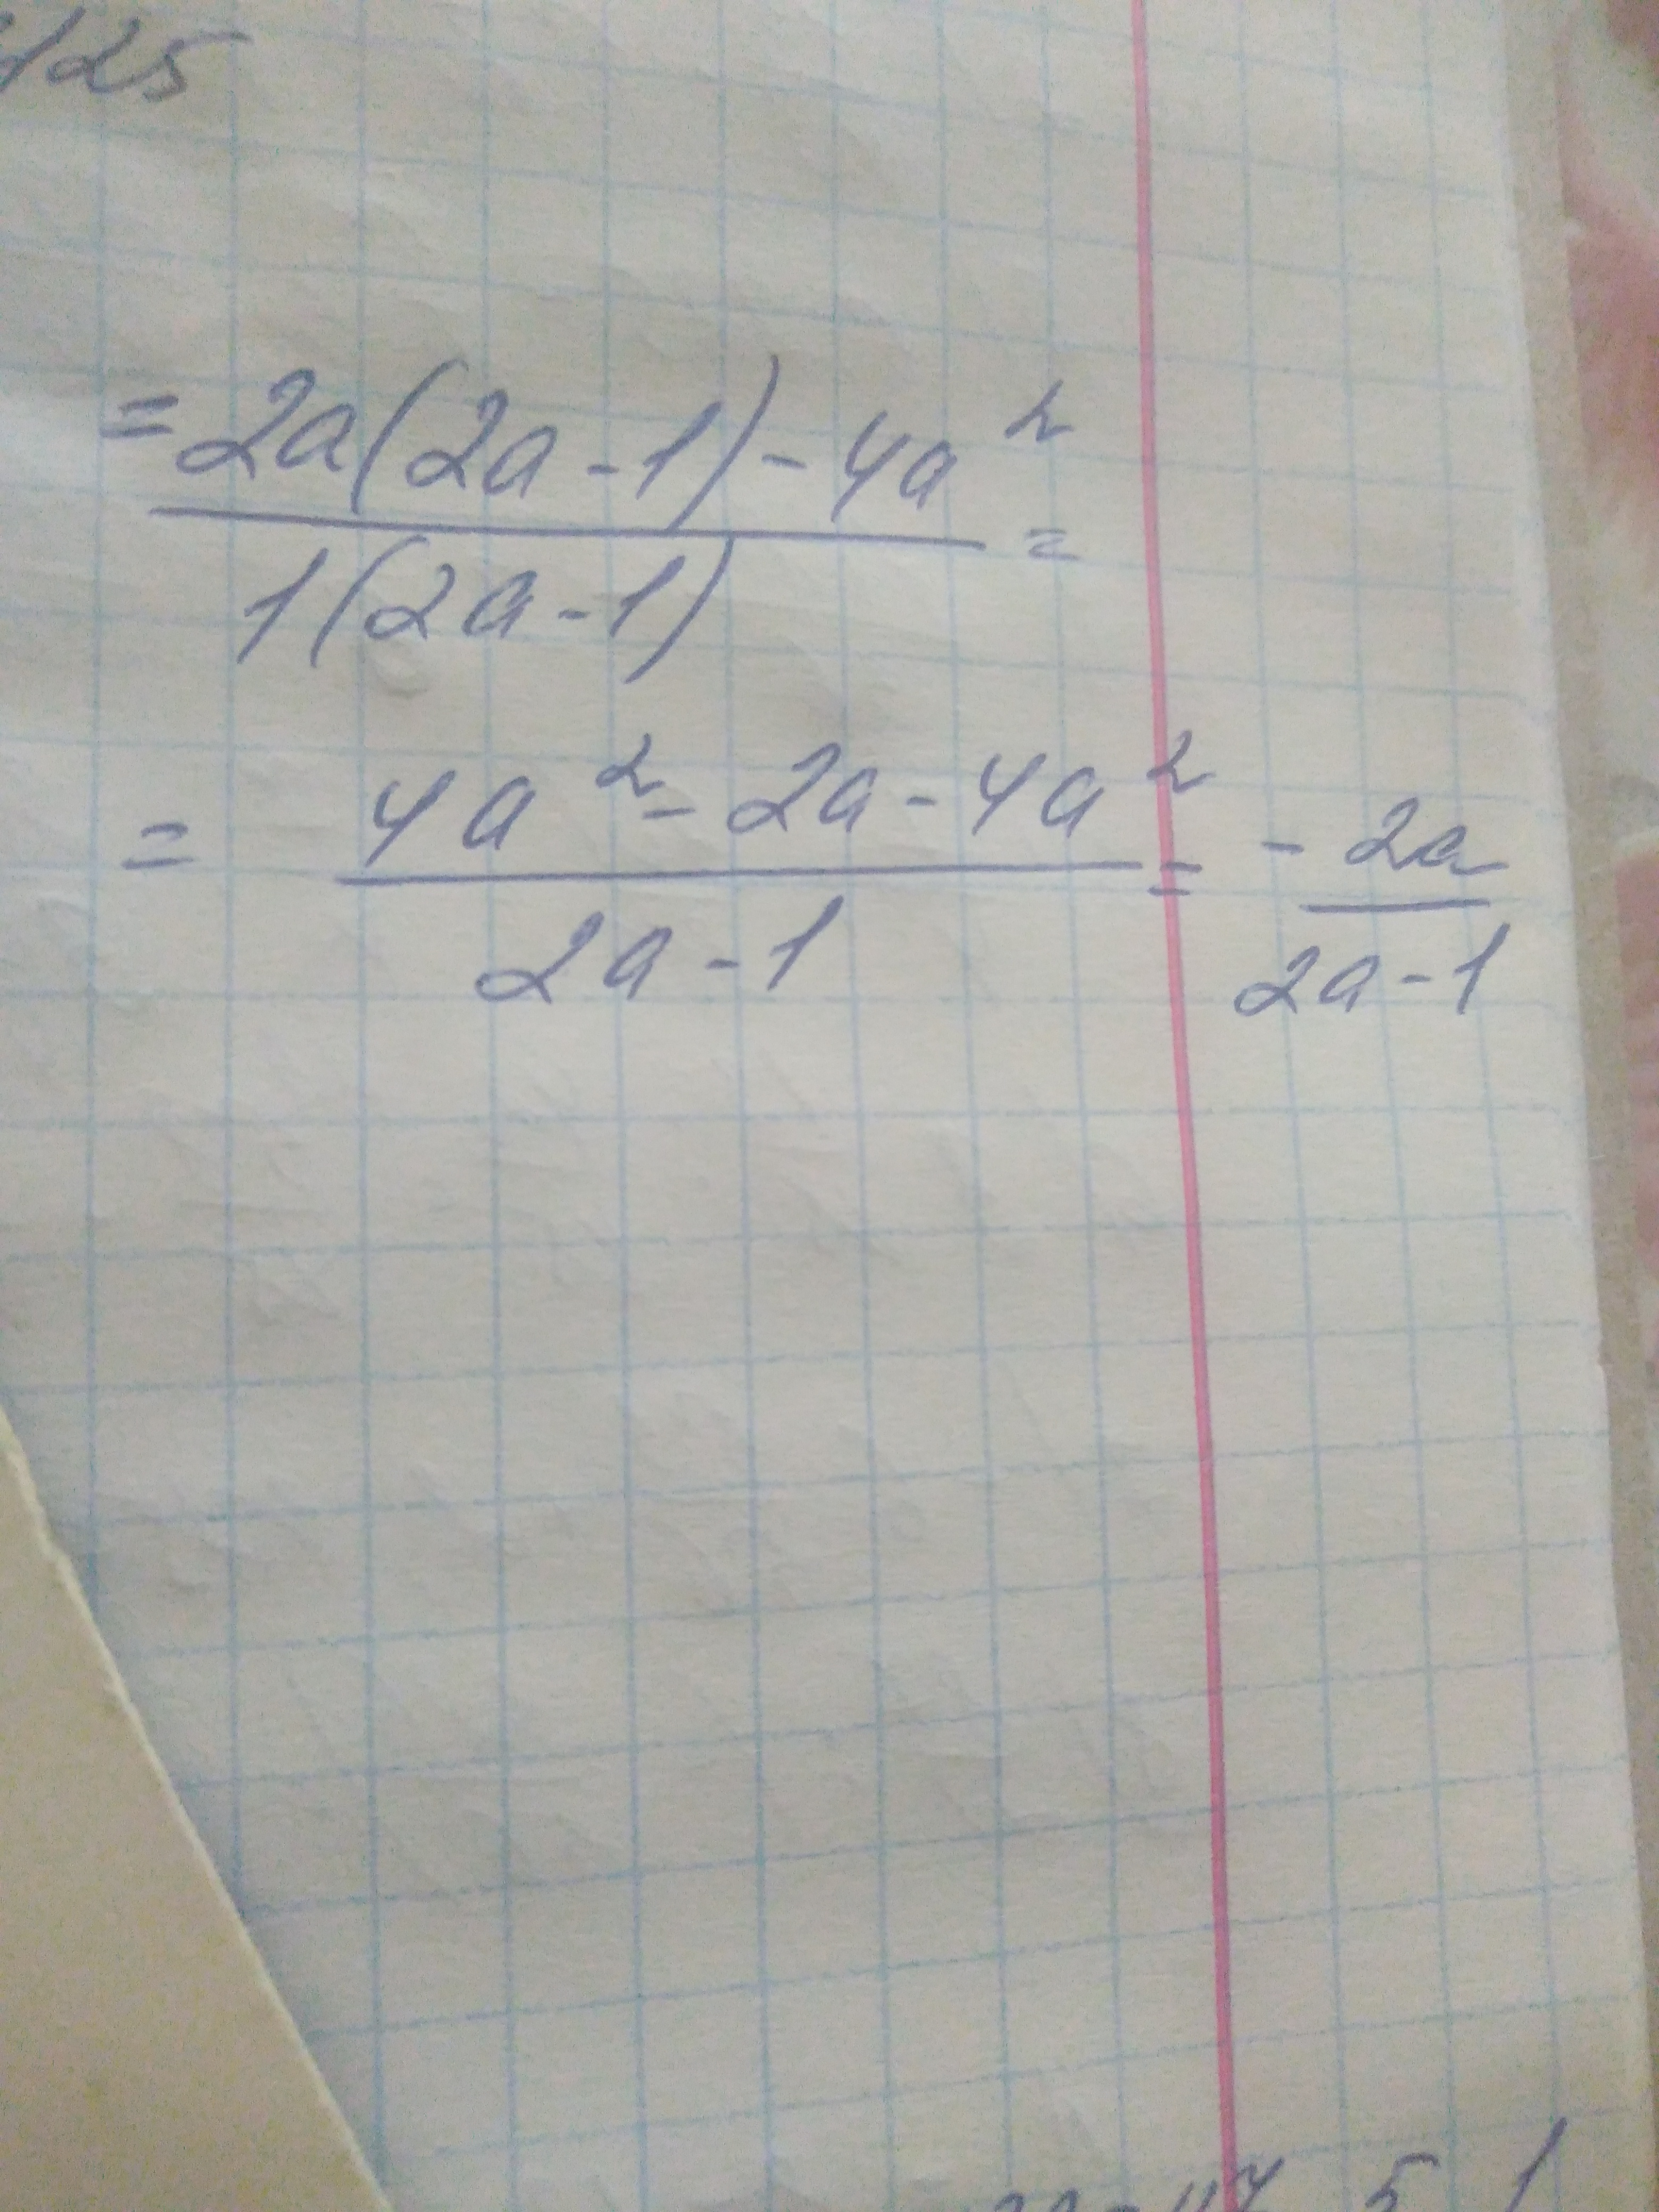 125
= 2a(2a-1)-4a² / 1(2a-1) =
= 4a²-2a-4a² / 2a-1 = -2a / 2a-1